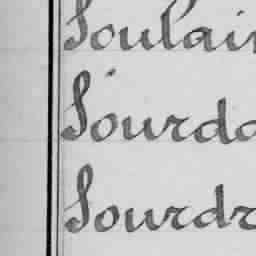 Soulair
Sourda
Sourdr